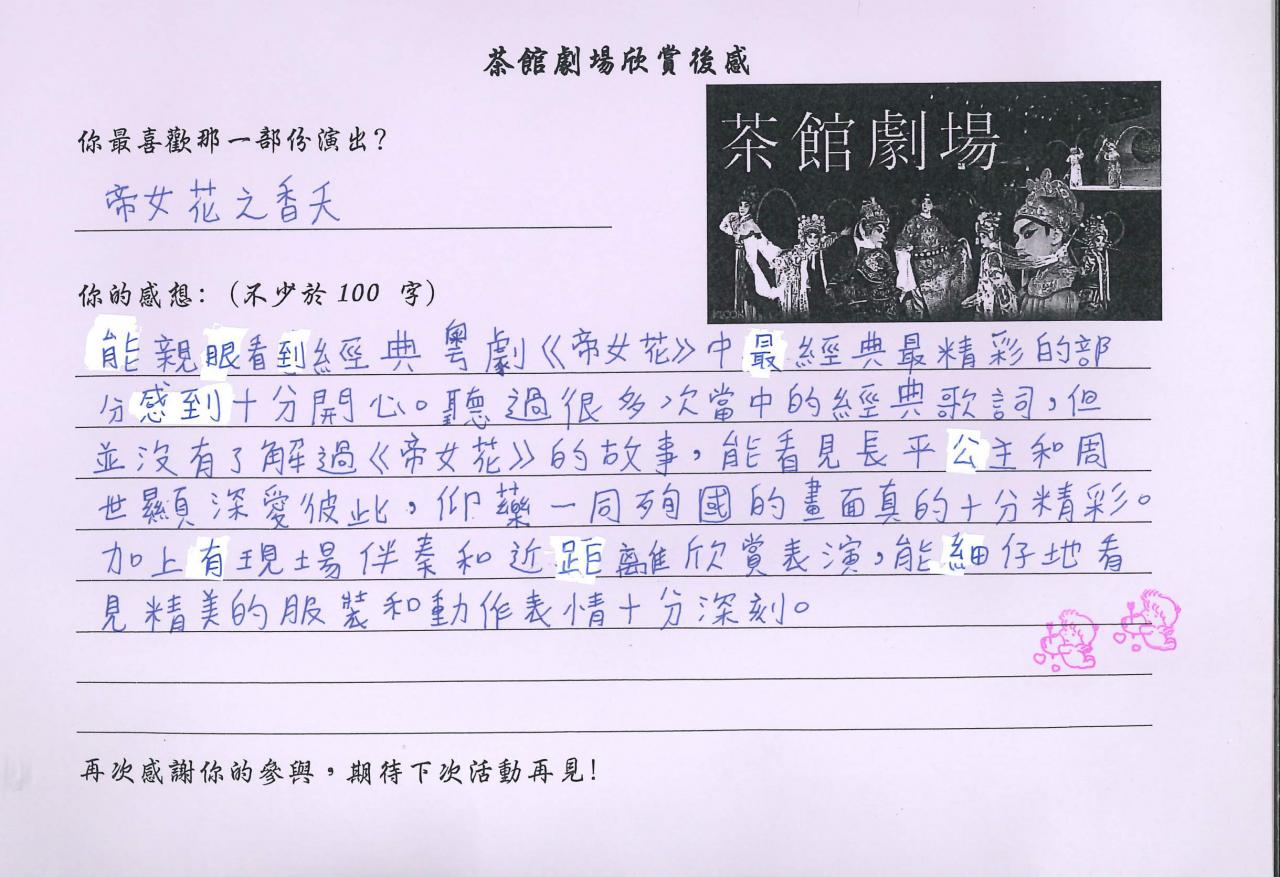 茶館劇場欣賞後感
茶館劇場
你最喜歡那一部份演出？
帝女花之香夭
你的感想：（不少於 100 字）
能親眼看到經典粵劇《帝女花》中最經典最精彩的部
分感到十分開心。聽過很多次當中的經典歌詞，但
並沒有了解過《帝女花》的故事，能看見長平公主和周
世顯深愛彼此，仰藥一同殉國的畫面真的十分精彩。
加上有現場伴奏和近距離欣賞表演，能細仔地看
見精美的服裝和動作表情十分深刻。
再次感謝你的參與，期待下次活動再見！